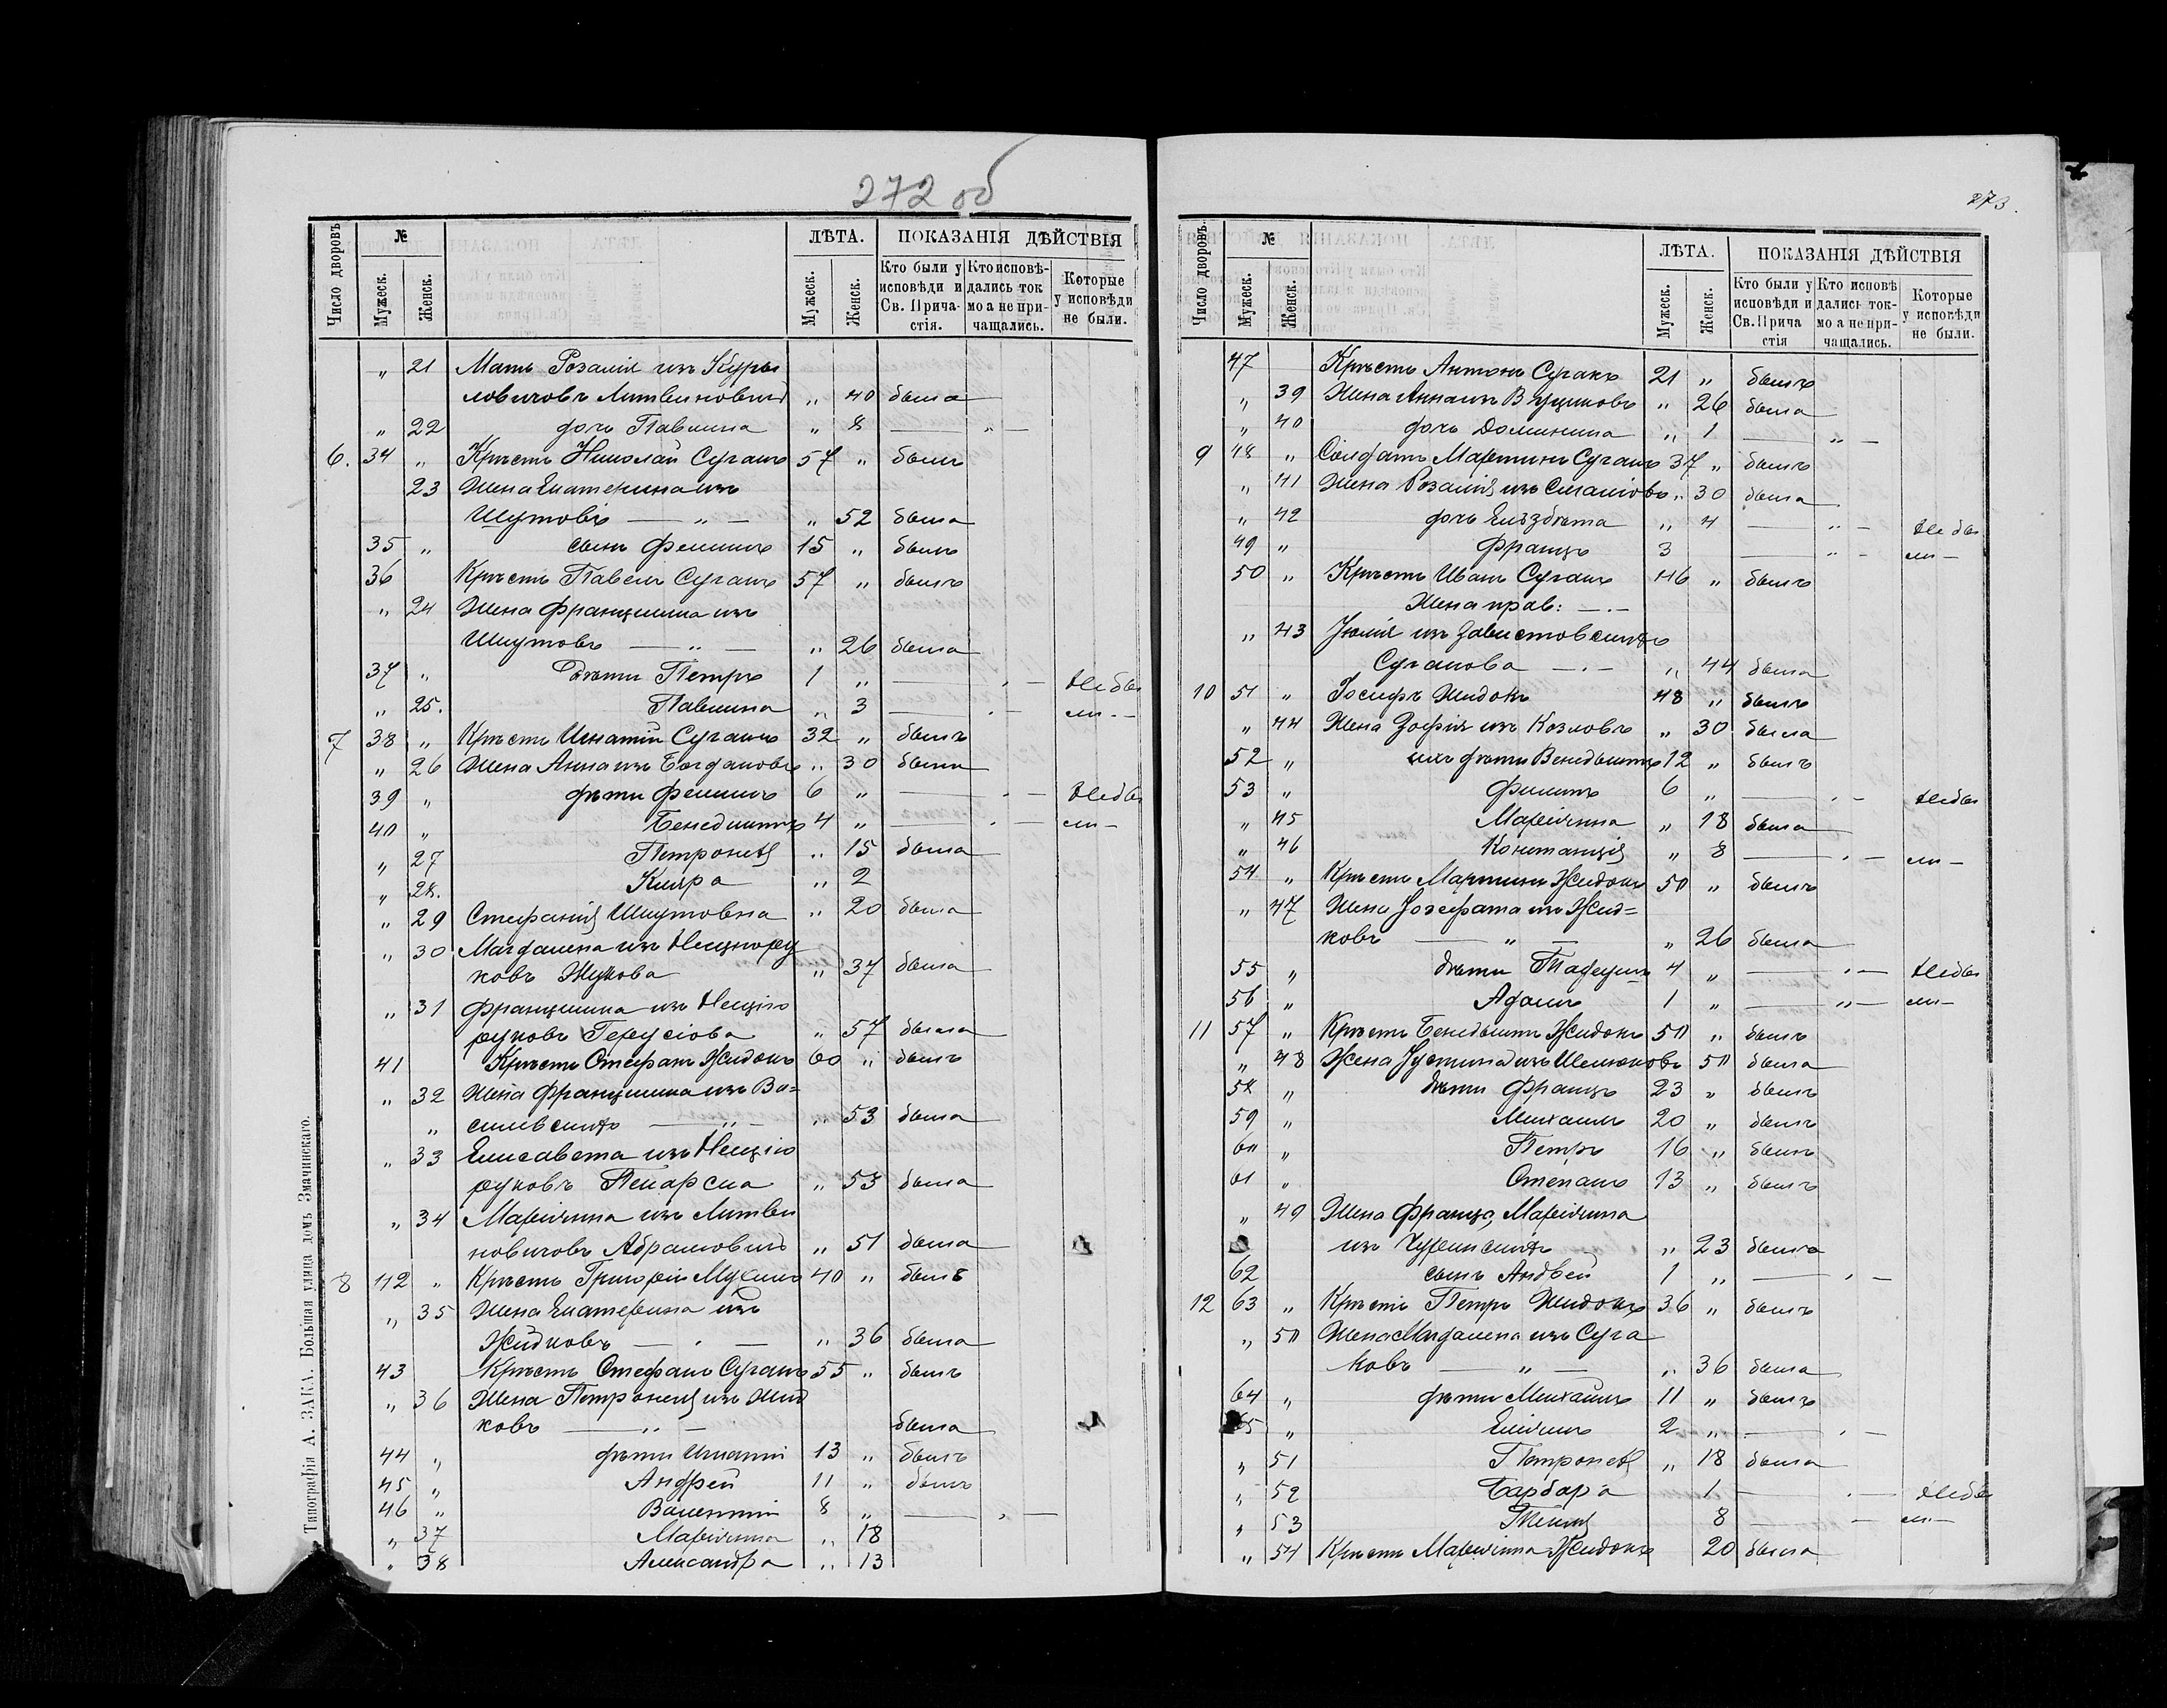 272 об
Число дворовъ
№
Мужеск.
Женск.
ЛѢТА.
Мужеск.
Женск.
ПОКАЗАНІЯ ДѢЙСТВІЯ
Кто были у исповѣди и Св. Прича-стія.
Кто исповѣ-дались ток мо а не при-чащались.
Которые у исповѣди не были.
„ 21 Мать Розалія изъ Куры
ловичовъ Литвиновичъ „ 40 была
„ 22 дочь Павлина „ 8 — „ —
6. 34 „ Крѣсть Николай Сугакъ 57 „ былъ
23 Жена Екатерина изъ
Шутовъ — „ — „ 52 была
35 „ сынъ Феликъ 15 „ былъ
36 Крѣсть Павелъ Сугакъ 57 „ былъ
„ 24 Жена Францишка изъ
Шутовъ — „ — „ 26 была
37 „ Дѣти Петръ 1 „ — „ — Не бы
„ 25. Павлина „ 3 — „ — ли —
7 38 „ Крѣсть Игнатій Сугакъ 32 „ былъ
„ 26 Жена Анна изъ Богдановъ „ 30 была
39 „ дѣти Феликъ 6 „ — „ — Не бы
40 „ Бенедиктъ 4 „ — „ — ли —
„ 27 Петронеля „ 15 была
„ 28. Клара „ 2
„ 29 Стефанія Шутовна „ 20 была
„ 30 Магдалена изъ
ковъ Жукова „ 37 была
„ 31 Францишка изъ
руковъ „ 57 была
41 Крѣсть Стефанъ Жидокъ 60 „ былъ
„ 32 Жена Францишка изъ Ва=
„ — „ — „ 53 была
„ 33 Елисавета изъ
руковъ „ 53 была
„ 34 Марьянна изъ Литви
новичовъ Абрамовичъ „ 51 была
8 42 „ Крѣсть Григорій 40 „ былъ
„ 35 Жена Екатерина изъ
Жидковъ — „ — „ 36 была
43 Крѣсть Стефанъ Сугакъ 55 „ былъ
„ 36 Жена Петронеля изъ Жид
ковъ — „ — была
44 „ дѣти Игнатій 13 „ былъ
45 „ Андрей 11 „ былъ
46 „ Валентій 8 „ — „ —
„ 37 Марьянна „ 18
„ 38 Александра „ 13
Типографія А. ЗАКА. Большая улица домъ Змачинскаго.
273.
Число дворовъ.
№
Мужеск.
Женск.
ЛѢТА.
Мужеск.
Женск.
ПОКАЗАНІЯ ДѢЙСТВІЯ
Кто были у исповѣди и Св. Прича стія
Кто исповѣ дались ток-мо а не при-чащались.
Которые у исповѣди не были.
47 Крѣсть Антонъ Сугакъ 21 „ былъ
„ 39 Жена Анна изъ „ 26 была
„ 40 дочь Доминика „ 1 — „ —
9 48 „ Солдатъ Мартинъ Сугакъ 37 „ былъ
„ 41 Жена Розалія изъ „ 30 была
„ 42 дочь Елѣзбѣта „ 4 — „ — Не бы
49 „ Францъ 3 — „ — ли —
50 „ Крѣсть Иванъ Сугакъ 46 „ былъ
Жена прав: — „ —
„ 43 Юлія изъ
Сугакова — „ — „ 44 была
10 51 „ Іосифъ Жидокъ 48 „ былъ
„ 44 Жена Зофія изъ Козловъ „ 30 была
52 „ ихъ дѣти Венедыктъ 12 „ былъ
53 „ Филипъ 6 „ — „ — Не бы
„ 45 Марьянна „ 18 была
„ 46 Констанція „ 8 — „ — ли —
54 „ Крѣсть Мартинъ Жидокъ 50 „ былъ
„ 47 Жена Іозефата изъ Жид=
ковъ — „ — „ 26 была
55 „ дѣти Тадеушъ 4 „ — „ — Не бы
56 „ Адамъ 1 „ — „ — ли —
11 57 „ Крѣсть Бенедыктъ Жидокъ 50 „ былъ
„ 48 Жена Юстина изъ Шелюковъ 50 была
58 „ дѣти Францъ 23 „ былъ
59 „ Михаилъ 20 „ былъ
60 „ Петръ 16 „ былъ
61 „ Степанъ 13 „ былъ
„ 49 Жена Франца, Марьянна
изъ „ 23 была
62 сынъ Андрей 1 „ — „ —
12 63 „ Крѣсть Петръ Жидокъ 36 „ былъ
„ 50 Жена Магдалена изъ Суга
ковъ — „ — „ 36 была
64 „ дѣти Михаилъ 11 „ былъ
65 „ 2 „ — „ —
„ 51 Петронеля „ 18 была
„ 52 Барбара 1 — „ — Не бы
„ 53 Текля 8 — — ли —
„ 54 Крѣсть Марьянна Жидокъ 20 была